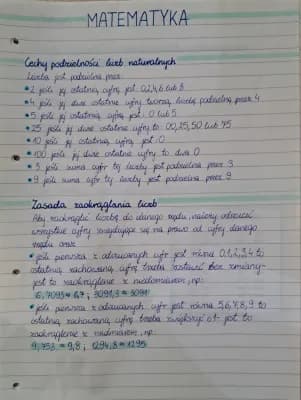 MATEMATYKA
Cechy podzielności liczb naturalnych
Liczba jest podzielna przez:
• 2 jeśli jej ostatnią cyfrą jest 0,2,4,6 lub 8
• 4 jeśli jej dwie ostatnie cyfry tworzą liczbę podzielną przez 4
• 5 jeśli jej ostatnią cyfrą jest: 0 lub 5
• 25 jeśli jej dwie ostatnie cyfry to: 00,25,50 lub 75
• 10 jeśli jej ostatnią cyfrą jest: 0
• 100 jeśli jej dwie ostatnie cyfry to dwa 0
• 3 jeśli suma cyfr tej liczby jest podzielna przez 3
• 9 jeśli suma cyfr tej liczby jest podzielna przez 9
Zasada zaokrąglania liczb
Aby zaokrąglić liczbę do danego rzędu, należy odrzucić
wszystkie cyfry znajdujące się na prawo od cyfry danego
rzędu oraz:
• jeśli pierwsza z odrzucanych cyfr jest równa 0,1,2,3,4 to
ostatnią zachowaną cyfrę trzeba zostawić bez zmiany-
jest to zaokrąglanie z niedomiarem, np.:
6,7093≈6,7 ; 3091,3≈3091
• jeśli pierwsza z odrzucanych cyfr jest równa 5,6,7,8,9 to
ostatnią zachowaną cyfrę trzeba zwiększyć o 1- jest to
zaokrąglenie z nadmiarem, np.:
9,753≈9,8 ; 1294,8≈1295